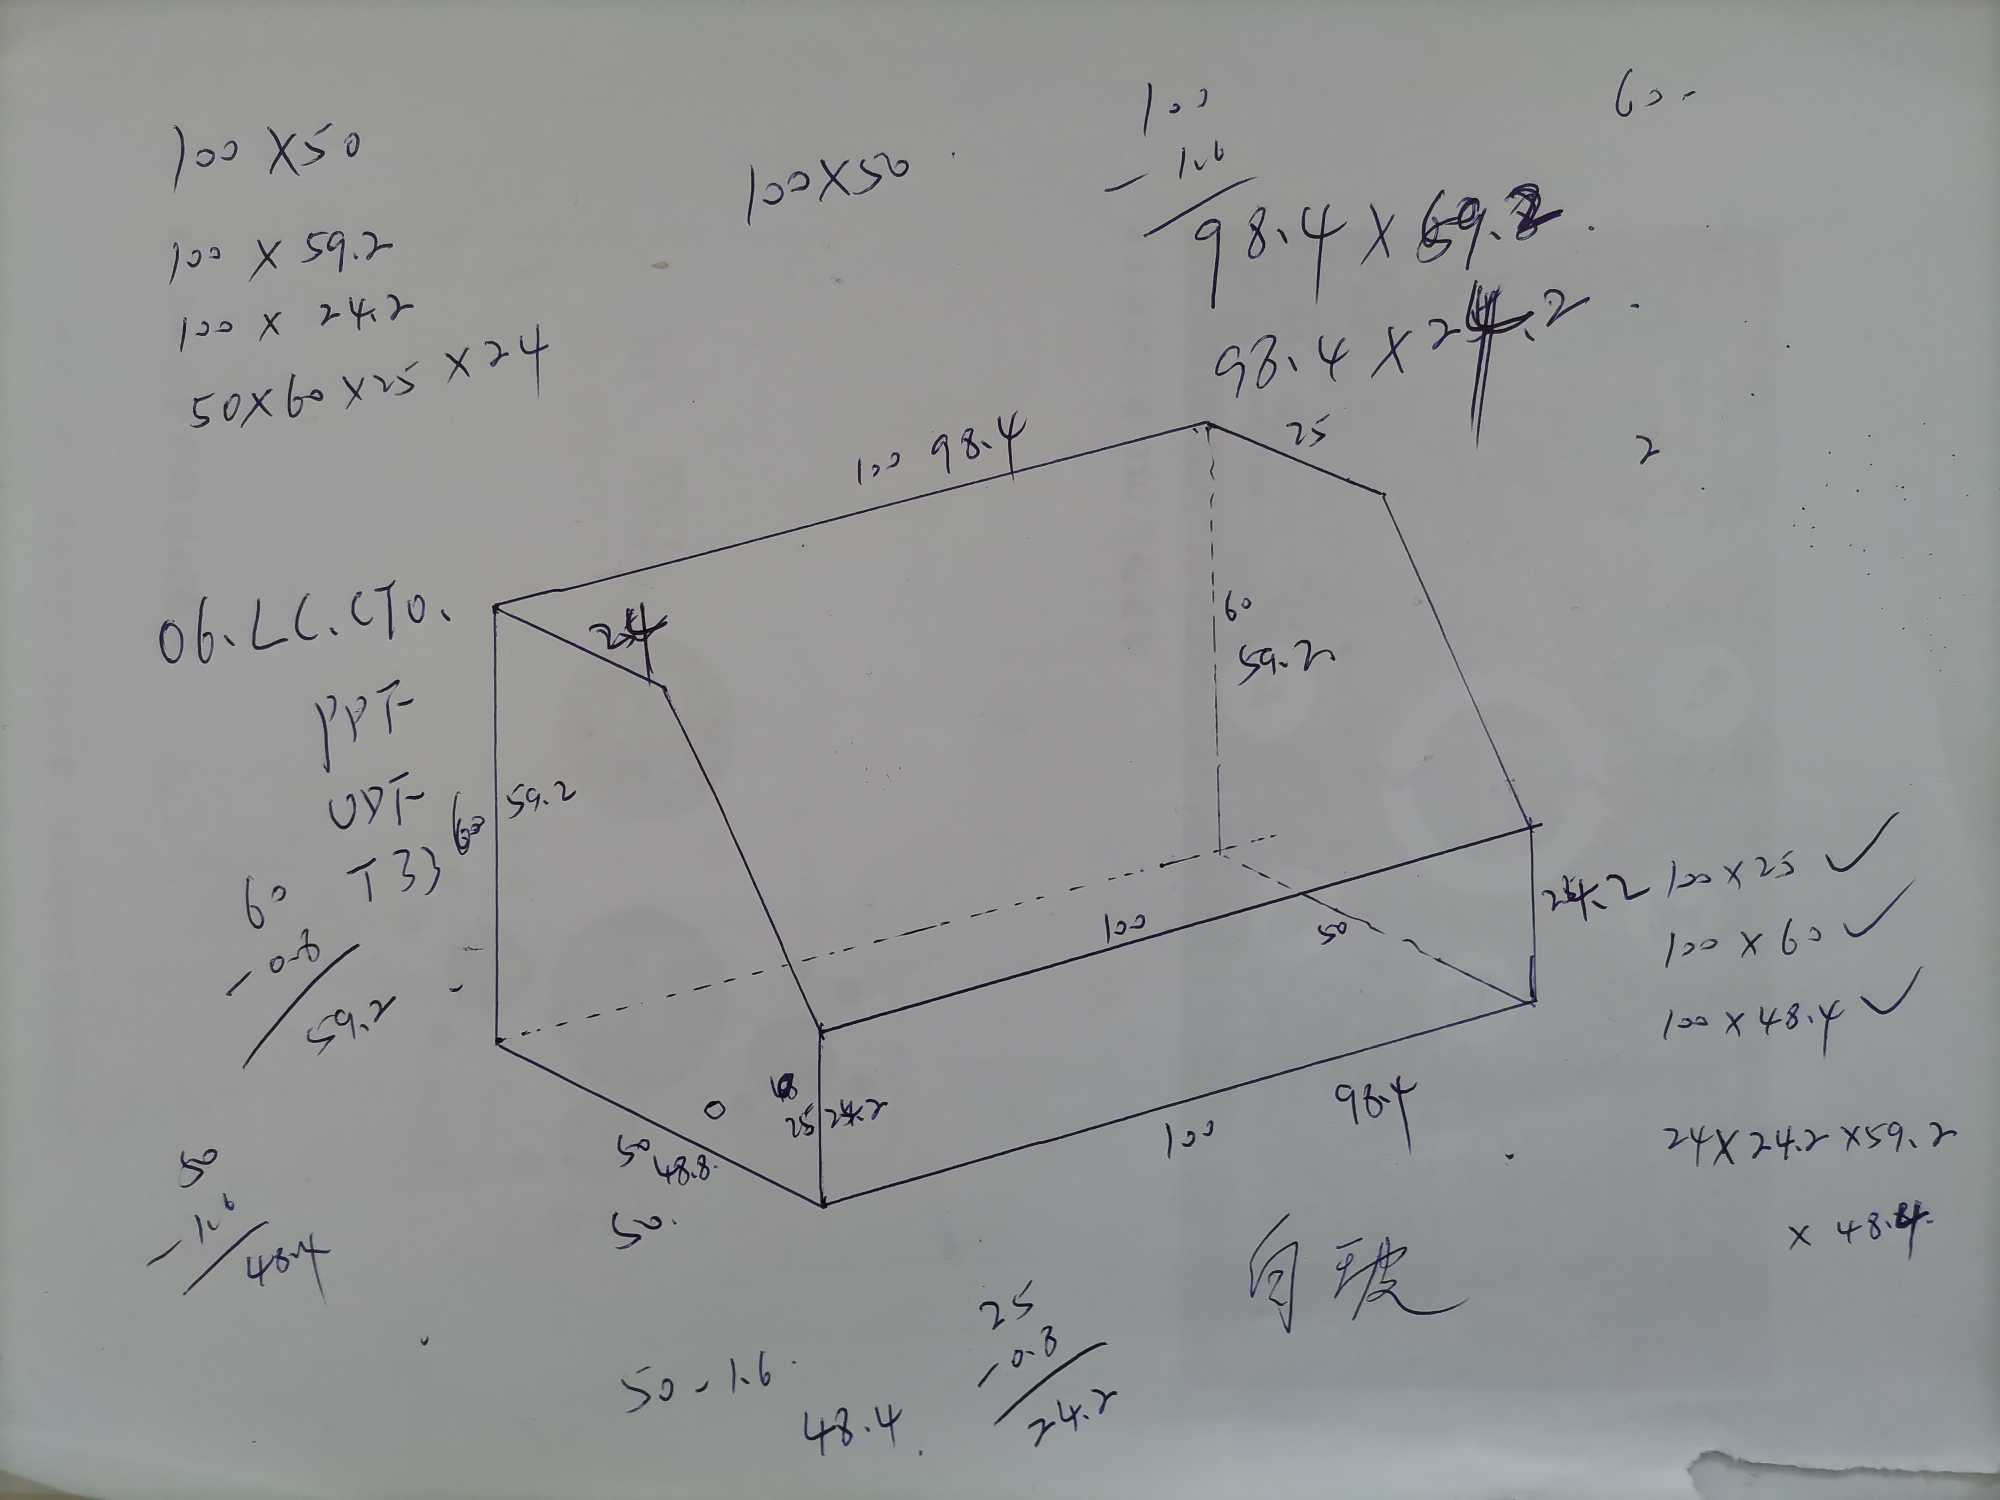 100 X 50
100 X 59.2
100 X 24.2
50 X 60 X 25 X 24
100 X 50
100
- 1.6
98.4 X 59.2
98.4 X 24.2
60
2
100 98.4
25
24
60
59.2
06. LC. CTO.
PPF
UDF
T33
60
59.2
60
- 0.8
59.2
50
- 1.6
48.4
100
50
24.2
25 24.2
50
48.8
50.
100
98.4
100 X 25 ✓
100 X 60 ✓
100 X 48.4 ✓
24 X 24.2 X 59.2
X 48.4
50 - 1.6
48.4
25
- 0.8
24.2